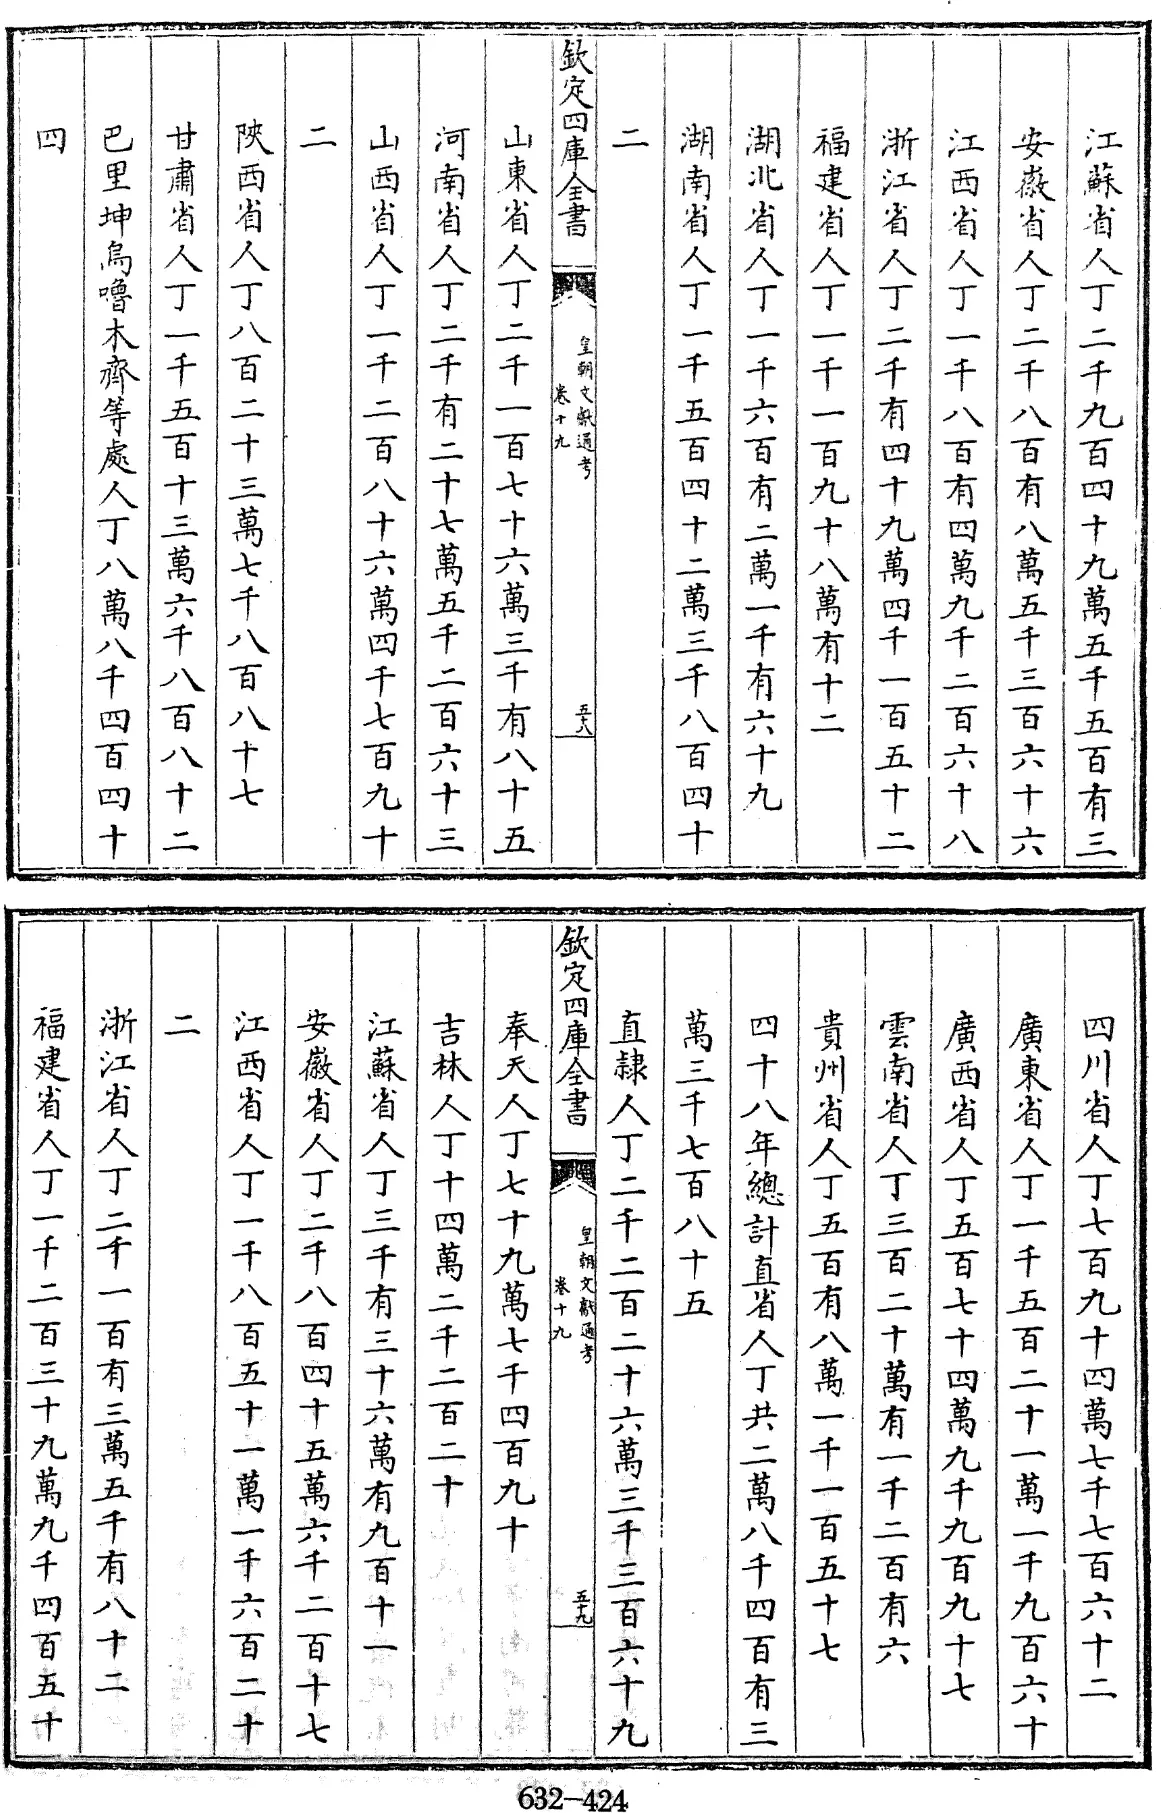 江蘇省人丁二千九百四十九萬五千五百有三
安徽省人丁二千八百有八萬五千三百六十六
江西省人丁一千八百有四萬九千二百六十八
浙江省人丁二千有四十九萬四千一百五十二
福建省人丁一千一百九十八萬有十二
湖北省人丁一千六百有二萬一千有六十九
湖南省人丁一千五百四十二萬三千八百四十
二
欽定四庫全書
皇朝文獻通考
卷十九
五十八
山東省人丁二千一百七十六萬三千有八十五
河南省人丁二千有二十七萬五千二百六十三
山西省人丁一千二百八十六萬四千七百九十
二
陝西省人丁八百二十三萬七千八百八十七
甘肅省人丁一千五百十三萬六千八百八十二
巴里坤烏嚕木齊等處人丁八萬八千四百四十
四
四川省人丁七百九十四萬七千七百六十二
廣東省人丁一千五百二十一萬一千九百六十
廣西省人丁五百七十四萬九千九百九十七
雲南省人丁三百二十萬有一千二百有六
貴州省人丁五百有八萬一千一百五十七
四十八年總計直省人丁共二萬八千四百有三
萬三千七百八十五
直隸人丁二千二百二十六萬三千三百六十九
欽定四庫全書
皇朝文獻通考
卷十九
五十九
奉天人丁七十九萬七千四百九十
吉林人丁十四萬二千二百二十
江蘇省人丁三千有三十六萬有九百十一
安徽省人丁二千八百四十五萬六千二百十七
江西省人丁一千八百五十一萬一千六百二十
二
浙江省人丁二千一百有三萬五千有八十二
福建省人丁一千二百三十九萬九千四百五十
632-424